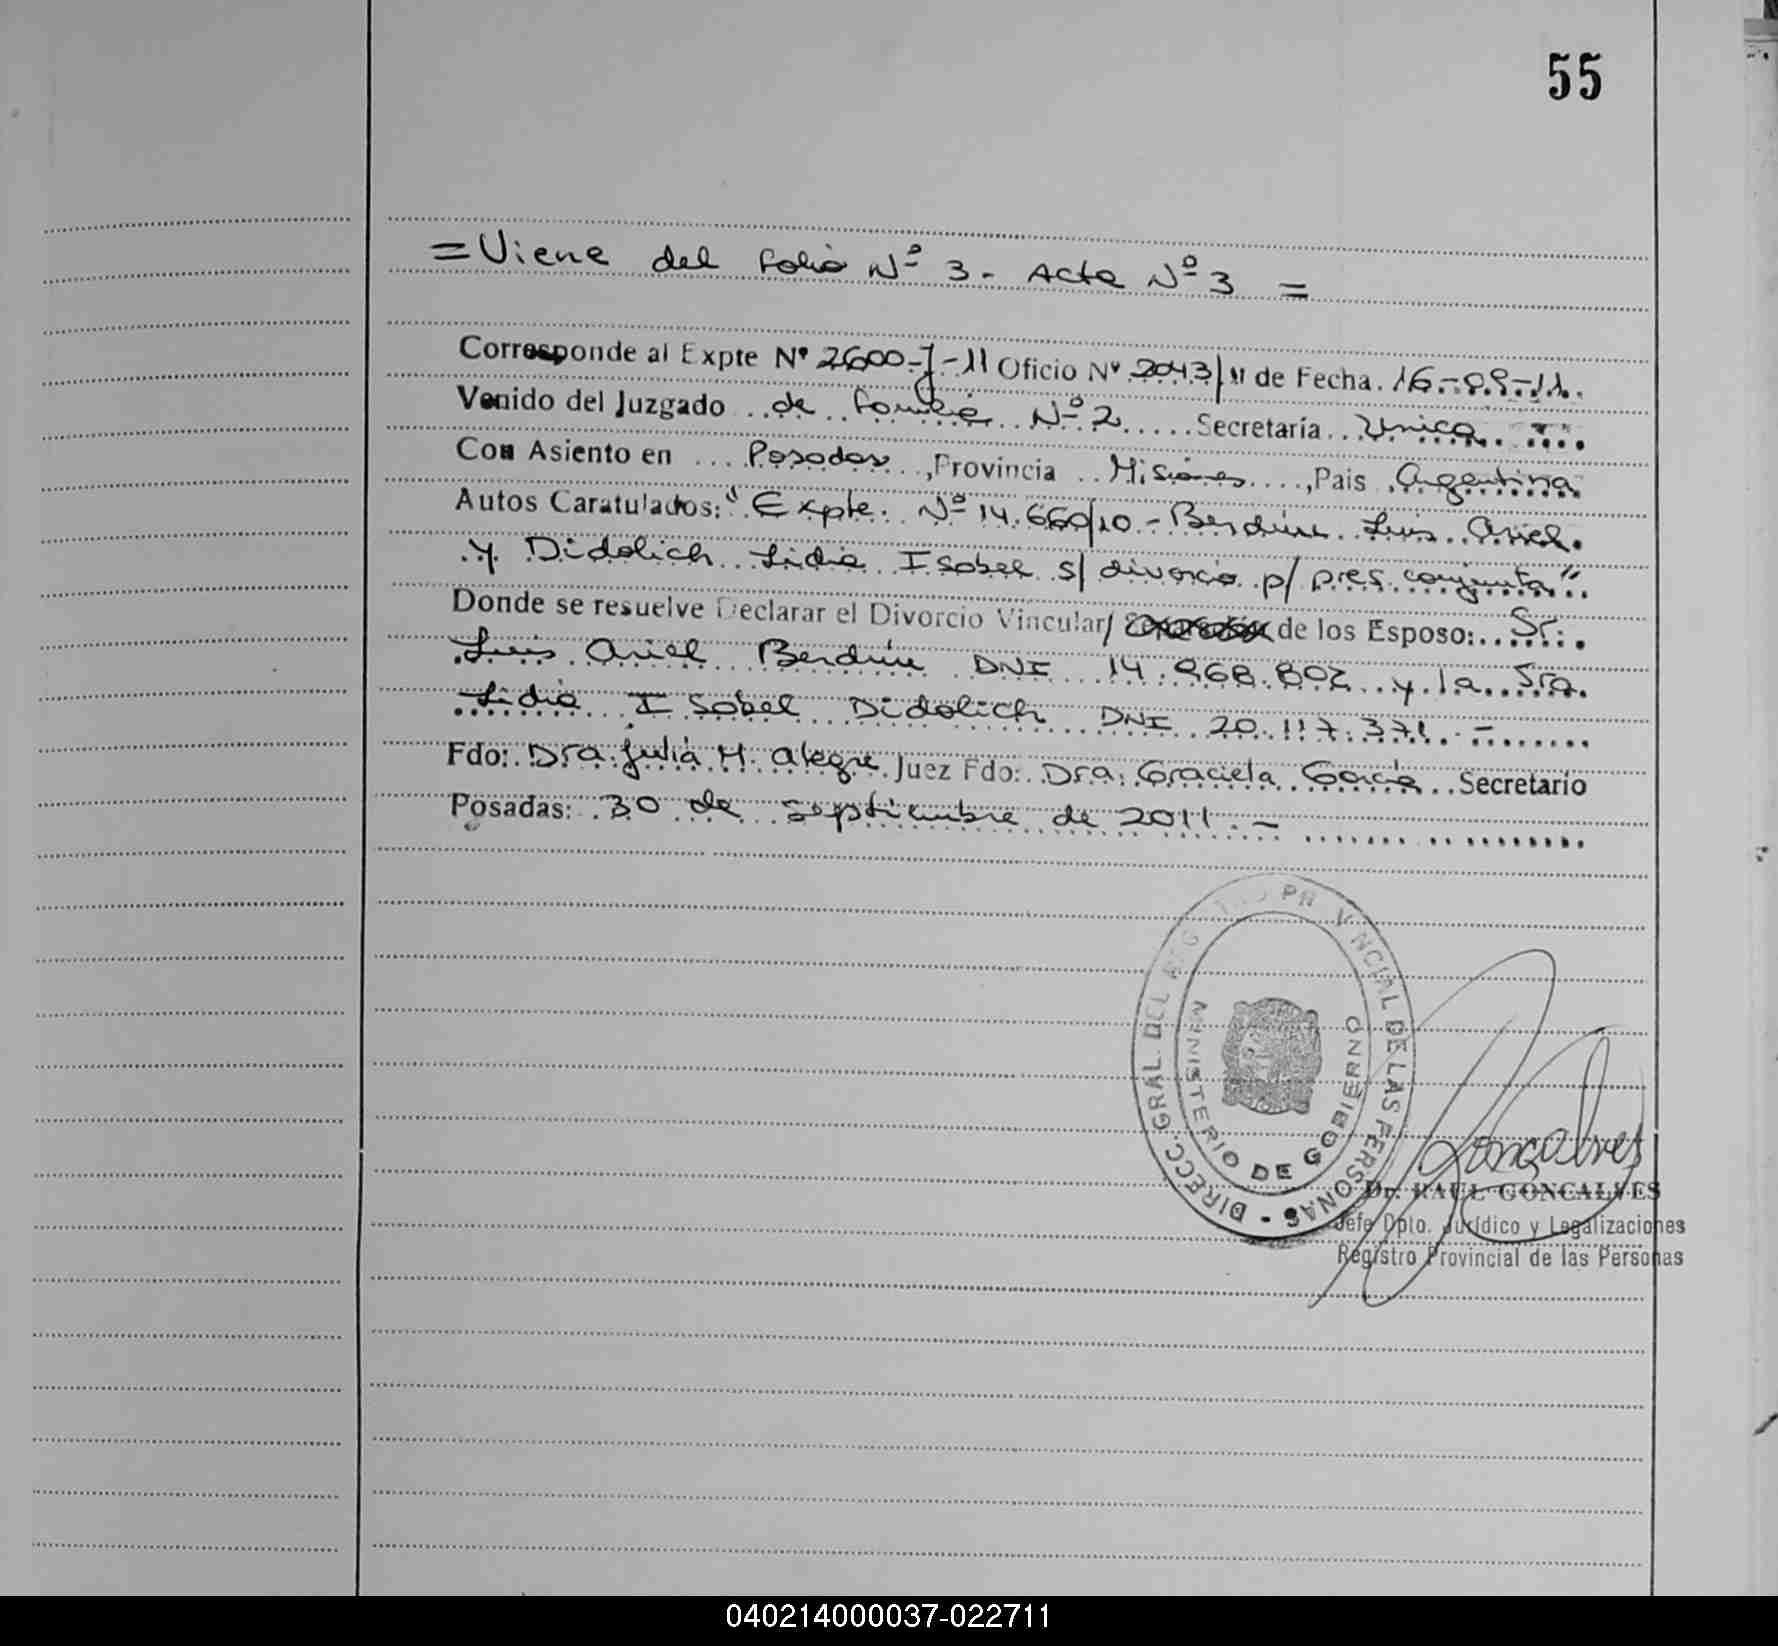 55
= Viene del folio Nº 3 - Acta Nº 3 =
Corresponde al Expte Nº 2600-J-11 Oficio Nº 2043/11 de Fecha 16-09-11.
Venido del Juzgado de Familia Nº 2 Secretaría Unica
Con Asiento en Posadas, Provincia Misiones, Pais Argentina
Autos Caratulados: "Expte. Nº 14.660/10 - Berdún Luis Ariel
y Didolich Lidia Isabel s/ divorcio p/ pres. conjunta"
Donde se resuelve Declarar el Divorcio Vincular/ de los Esposo: Sr.
Luis Ariel Berdún DNI 14.968.802 y la Sra.
Lidia Isabel Didolich DNI 20.117.371. -
Fdo: Dra. Julia M. Alegre Juez Fdo: Dra. Graciela García Secretario
Posadas: 30 de septiembre de 2011. -
DIRECC. GRAL. DEL REGISTRO PROVINCIAL DE LAS PERSONAS -
MINISTERIO DE GOBIERNO
Goncalves
Dr. RAUL GONCALVES
Jefe Dpto. Jurídico y Legalizaciones
Registro Provincial de las Personas
040214000037-022711